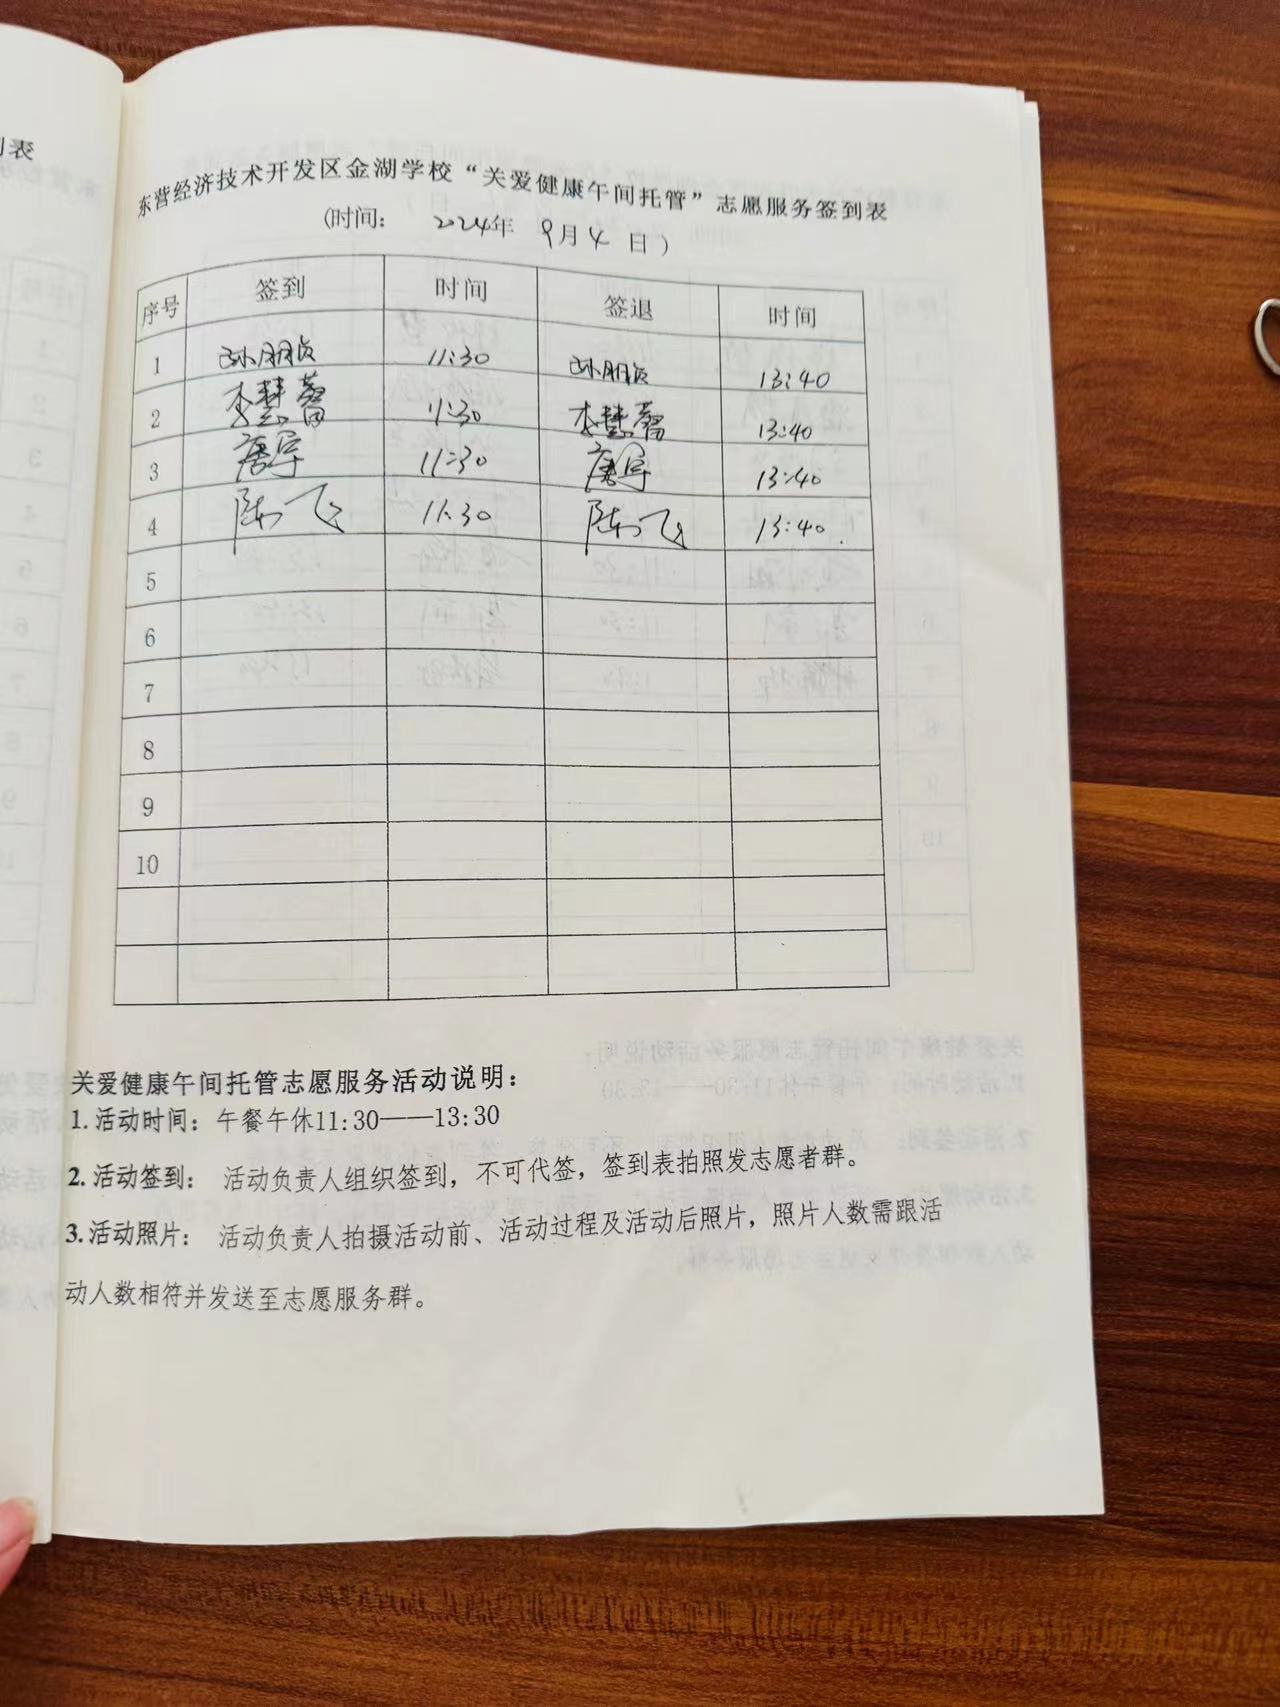 列表
东营经济技术开发区金湖学校“关爱健康午间托管”志愿服务签到表
(时间: 2024年 9月4 日)
序号 签到 时间 签退 时间
1 孙朋贞 11:30 孙朋贞 13:40
2 李慧馨 11:30 李慧馨 13:40
3 唐军 11:30 唐军 13:40
4 陈飞 11:30 陈飞 13:40.
5
6
7
8
9
10
关爱健康午间托管志愿服务活动说明:
1.活动时间: 午餐午休11:30——13:30
2.活动签到: 活动负责人组织签到,不可代签,签到表拍照发志愿者群。
3.活动照片: 活动负责人拍摄活动前、活动过程及活动后照片,照片人数需跟活
动人数相符并发送至志愿服务群。